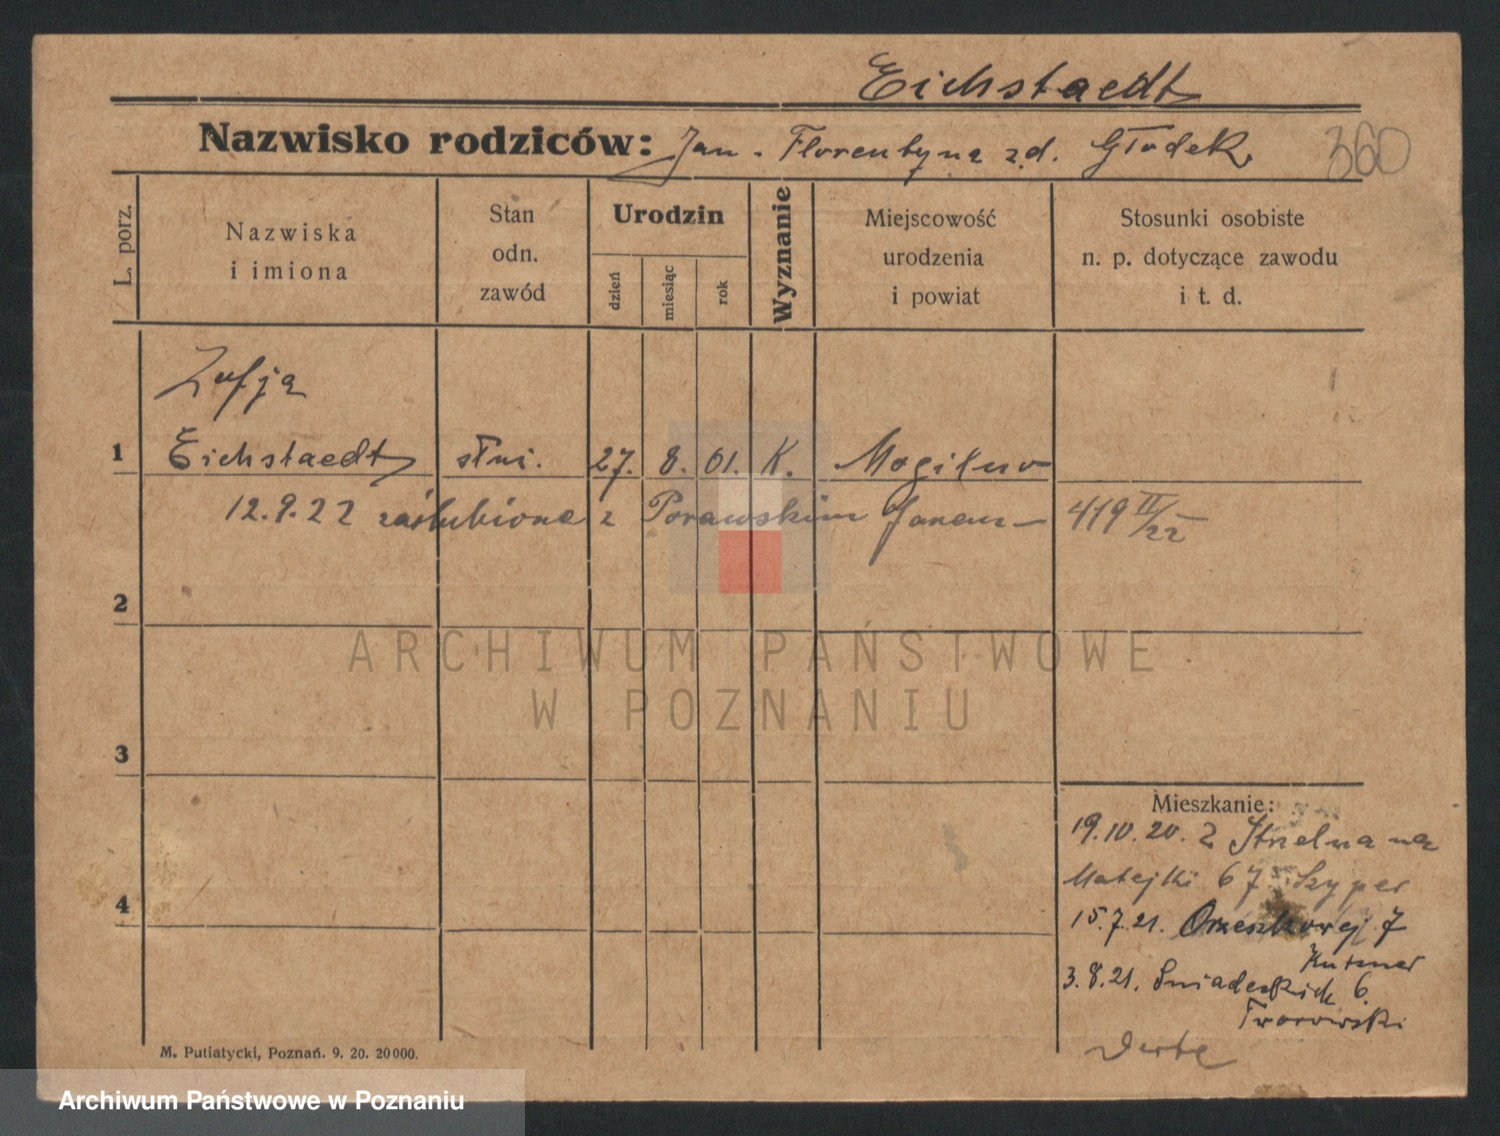 Eichstaedt
Nazwisko rodziców: Jan - Florentyna z d. Głodek
360
L. porz.
Nazwiska
i imiona
Stan
odn.
zawód
Urodzin
dzień
miesiąc
rok
Wyznanie
Miejscowość
urodzenia
i powiat
Stosunki osobiste
n. p. dotyczące zawodu
i t. d.
Zofja
1 Eichstaedt służ. 27. 8. 01. K. Mogilno
12.9.22 zaślubiona z Porawskim Janem - 419 II/22
2
ARCHIWUM PAŃSTWOWE
W POZNANIU
3
4
Mieszkanie:
19.10.20. z Strzelna na
Matejki 67 Szyper
15.7.21. Orzeszkowej 7
Kutzner
3.8.21. Śniadeckich 6.
Tworowski
M. Putiatycki, Poznań. 9. 20. 20000.
Archiwum Państwowe w Poznaniu